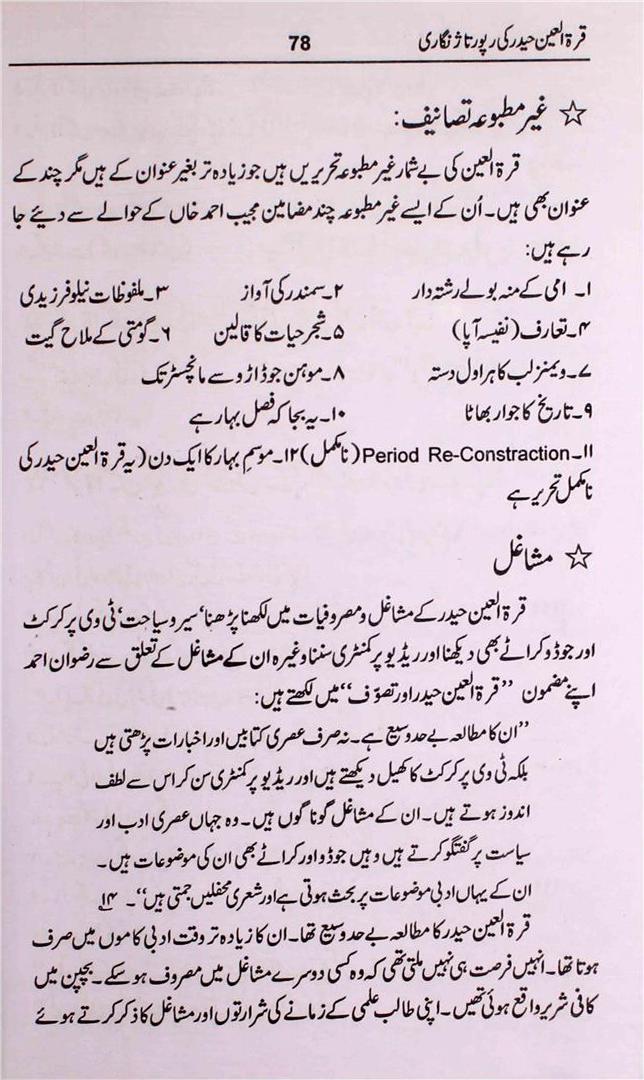 قرۃ العین حیدر کی رپورتاژ نگاری 78
☆ غیر مطبوعہ تصانیف:
قرۃ العین کی بے شمار غیر مطبوعہ تحریریں ہیں جو زیادہ تر بغیر عنوان کے ہیں مگر چند کے
عنوان بھی ہیں۔ اُن کے ایسے غیر مطبوعہ چند مضامین مجیب احمد خاں کے حوالے سے دیئے جا
رہے ہیں:
۱۔ امی کے منہ بولے رشتہ دار ۲۔ سمندر کی آواز ۳۔ ملفوظات نیلوفر زیدی
۴۔ تعارف (نفیسہ آپا) ۵۔ شجر حیات کا قالین ۶۔ گومتی کے ملاح گیت
۷۔ ویمنز لب کا ہراول دستہ ۸۔ موہن جوڈارو سے مانچسٹر تک
۹۔ تاریخ کا جوار بھاٹا ۱۰۔ یہ بجا کہ فصل بہار ہے
۱۱۔ Period Re-Constraction (نامکمل) ۱۲۔ موسم بہار کا ایک دن (یہ قرۃ العین حیدر کی
نامکمل تحریر ہے
☆ مشاغل
قرۃ العین حیدر کے مشاغل و مصروفیات میں لکھنا پڑھنا، سیر و سیاحت، ٹی وی پر کرکٹ
اور جوڈو کراٹے بھی دیکھنا اور ریڈیو پر کمنٹری سننا وغیرہ ان کے مشاغل کے تعلق سے رضوان احمد
اپنے مضمون ’’قرۃ العین حیدر اور تصوّف‘‘ میں لکھتے ہیں:
’’ان کا مطالعہ بے حد وسیع ہے۔ نہ صرف عصری کتابیں اور اخبارات پڑھتی ہیں
بلکہ ٹی وی پر کرکٹ کا کھیل دیکھتے ہیں اور ریڈیو پر کمنٹری سن کر اس سے لطف
اندوز ہوتے ہیں۔ ان کے مشاغل گوناگوں ہیں۔ وہ جہاں عصری ادب اور
سیاست پر گفتگو کرتے ہیں وہیں جوڈو اور کراٹے بھی ان کی موضوعات ہیں۔
ان کے یہاں ادبی موضوعات پر بحث ہوتی ہے اور شعری محفلیں جمتی ہیں‘‘۔ ۱۴
قرۃ العین حیدر کا مطالعہ بے حد وسیع تھا۔ ان کا زیادہ تر وقت ادبی کاموں میں صرف
ہوتا تھا۔ انہیں فرصت ہی نہیں ملتی تھی کہ وہ کسی دوسرے مشاغل میں مصروف ہو سکے۔ بچپن میں
کافی شریر واقع ہوئی تھیں۔ اپنی طالب علمی کے زمانے کی شرارتوں اور مشاغل کا ذکر کرتے ہوئے